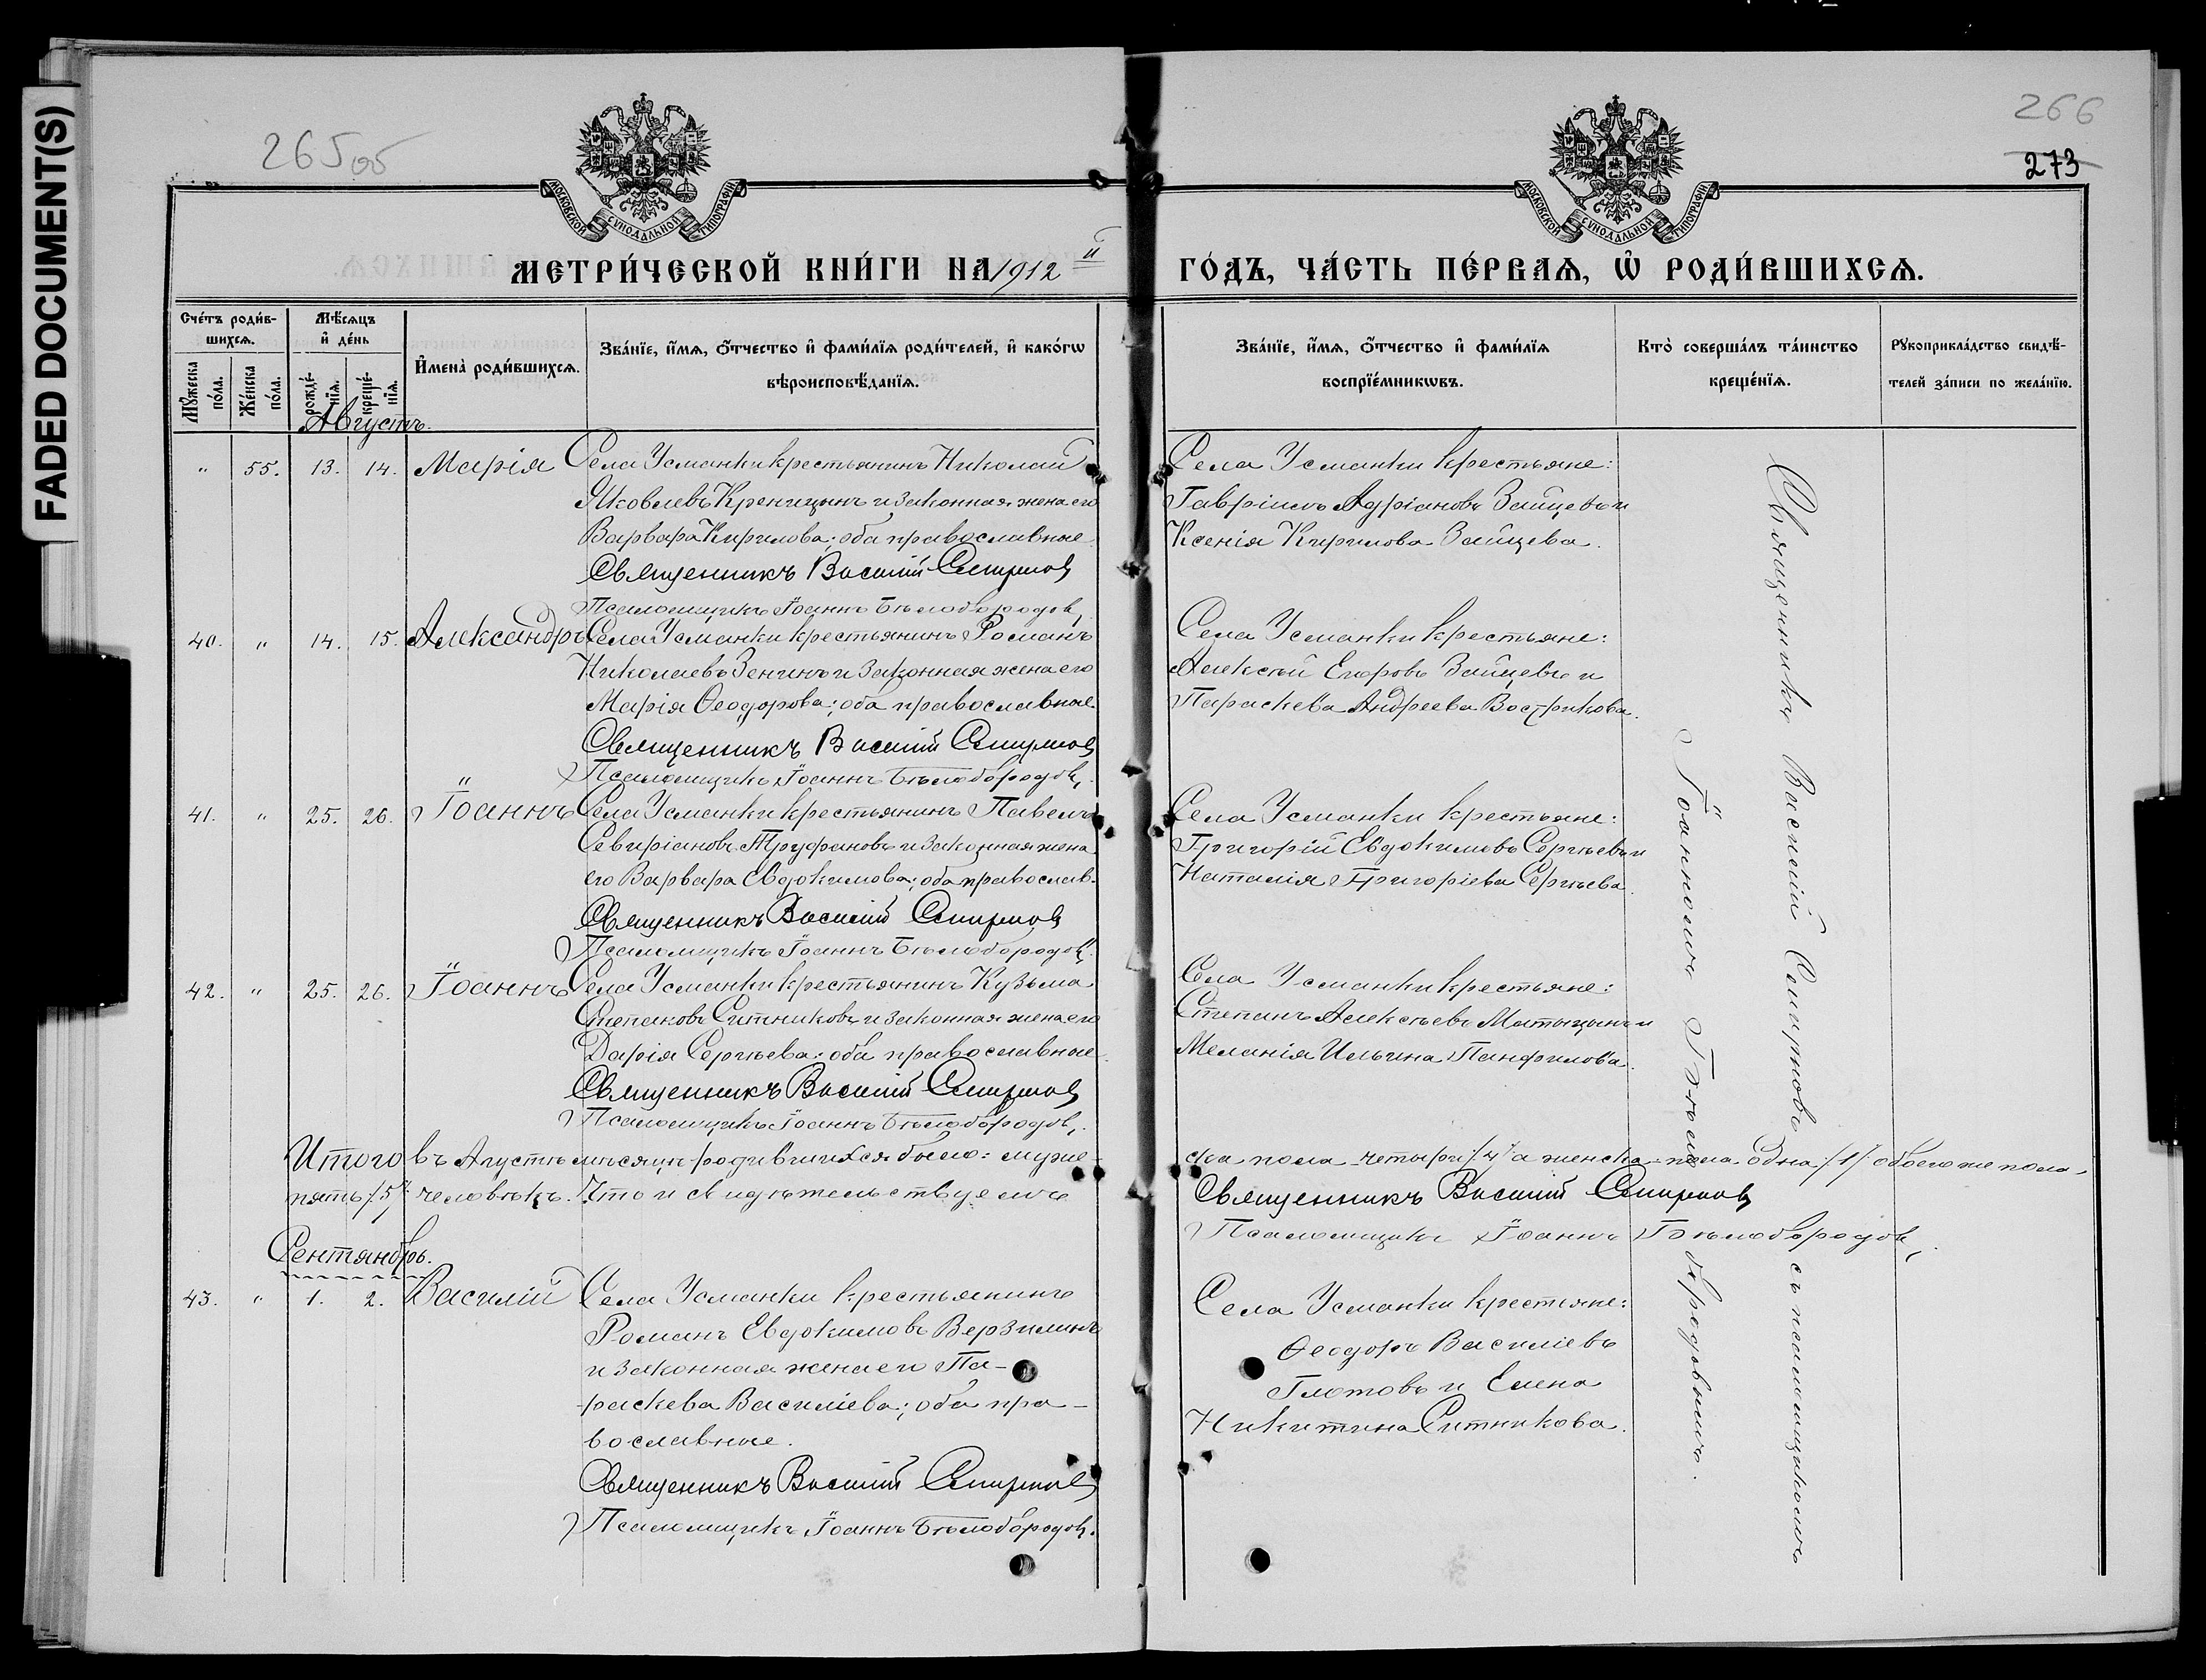 FADED DOCUMENT(S)
265об
266
273
МОСКОВСКОЙ СѴНОДАЛЬНОЙ ТИПОГРАФІИ
МОСКОВСКОЙ СѴНОДАЛЬНОЙ ТИПОГРАФІИ
МЕТРИ́ЧЕСКОЙ КНИ́ГИ НА 1912й
ГО́ДЪ, ЧА́СТЬ ПЕ́РВАѦ, Ѡ҆ РОДИ́ВШИХСѦ.
Сче́тъ роди́в-
шихсѧ.
Мꙋ́жеска по́ла.
Же́нска по́ла.
Мѣ́сѧцъ
и҆ де́нь
рожде́-
нїѧ.
креще́-
нїѧ.
И҆мена̀ роди́вшихсѧ.
Зва́нїе, и҆́мѧ, о҆́тчество и҆ фами́лїѧ роди́телей, и҆ како́гѡ
вѣроисповѣ́данїѧ.
Зва́нїе, и҆́мѧ, о҆́тчество и҆ фами́лїѧ
воспрїе́мникѡвъ.
Кто̀ соверша́лъ та́инство
креще́нїѧ.
Рꙋкоприкла́дство свидѣ́-
телей за́писи по жела́нїю.
Августъ.
" 55. 13. 14. Марія Села Усманки крестьянинъ Николай
Яковлевъ Креницынъ и законная жена его
Варвара Кирилова; оба православные
Священникъ Василій Смирновъ
Псаломщикъ Іоаннъ Бѣлобородовъ
Села Усманки крестьяне:
Гавріилъ Адріановъ Зайцевъ и
Ксенія Кирилова Зайцева.
40. " 14. 15. Александръ Села Усманки крестьянинъ Романъ
Николаевъ Зенинъ и законная жена его
Марія Ѳеодорова; оба православные.
Священникъ Василій Смирновъ
Псаломщикъ Іоаннъ Бѣлобородовъ.
Села Усманки крестьяне:
Алексѣй Егоровъ Зайцевъ и
Параскева Андреева Вострикова.
41. " 25. 26. Іоаннъ Села Усманки крестьянинъ Павелъ
Севиріановъ Труфановъ и законная жена
его Варвара Евдокимова; оба православ.
Священникъ Василій Смирновъ
Псаломщикъ Іоаннъ Бѣлобородовъ.
Села Усманки крестьяне:
Григорій Евдокимовъ Сергѣевъ и
Наталія Григоріева Сергѣева.
42. " 25. 26. Іоаннъ Села Усманки крестьянинъ Кузьма
Степановъ Ситниковъ и законная жена его
Дарія Сергѣева; оба православные
Священникъ Василій Смирновъ
Псаломщикъ Іоаннъ Бѣлобородовъ.
Села Усманки крестьяне:
Степанъ Алексѣевъ Матыцынъ и
Меланія Ильина Панфилова.
Итого въ Августѣ мѣсяцѣ родившихся было: муже-
ска пола четыре /4/ а женска пола одна /1/ обоего же пола
пять /5/ человѣкъ. Что и свидѣтельствуемъ
Священникъ Василій Смирновъ
Псаломщикъ Іоаннъ Бѣлобородовъ.
Сентябрь.
43. " 1. 2. Василій Села Усманки крестьянинъ
Романъ Евдокимовъ Верзилинъ
и законная жена его Па-
раскева Василіева; оба пра-
вославные.
Священникъ Василій Смирновъ
Псаломщикъ Іоаннъ Бѣлобородовъ.
Села Усманки крестьяне:
Ѳеодоръ Василіевъ
Глотовъ и Елена
Никитина Ситникова.
Священникъ Василій Смирновъ съ псаломщикомъ
Іоанномъ Бѣлобородовымъ.